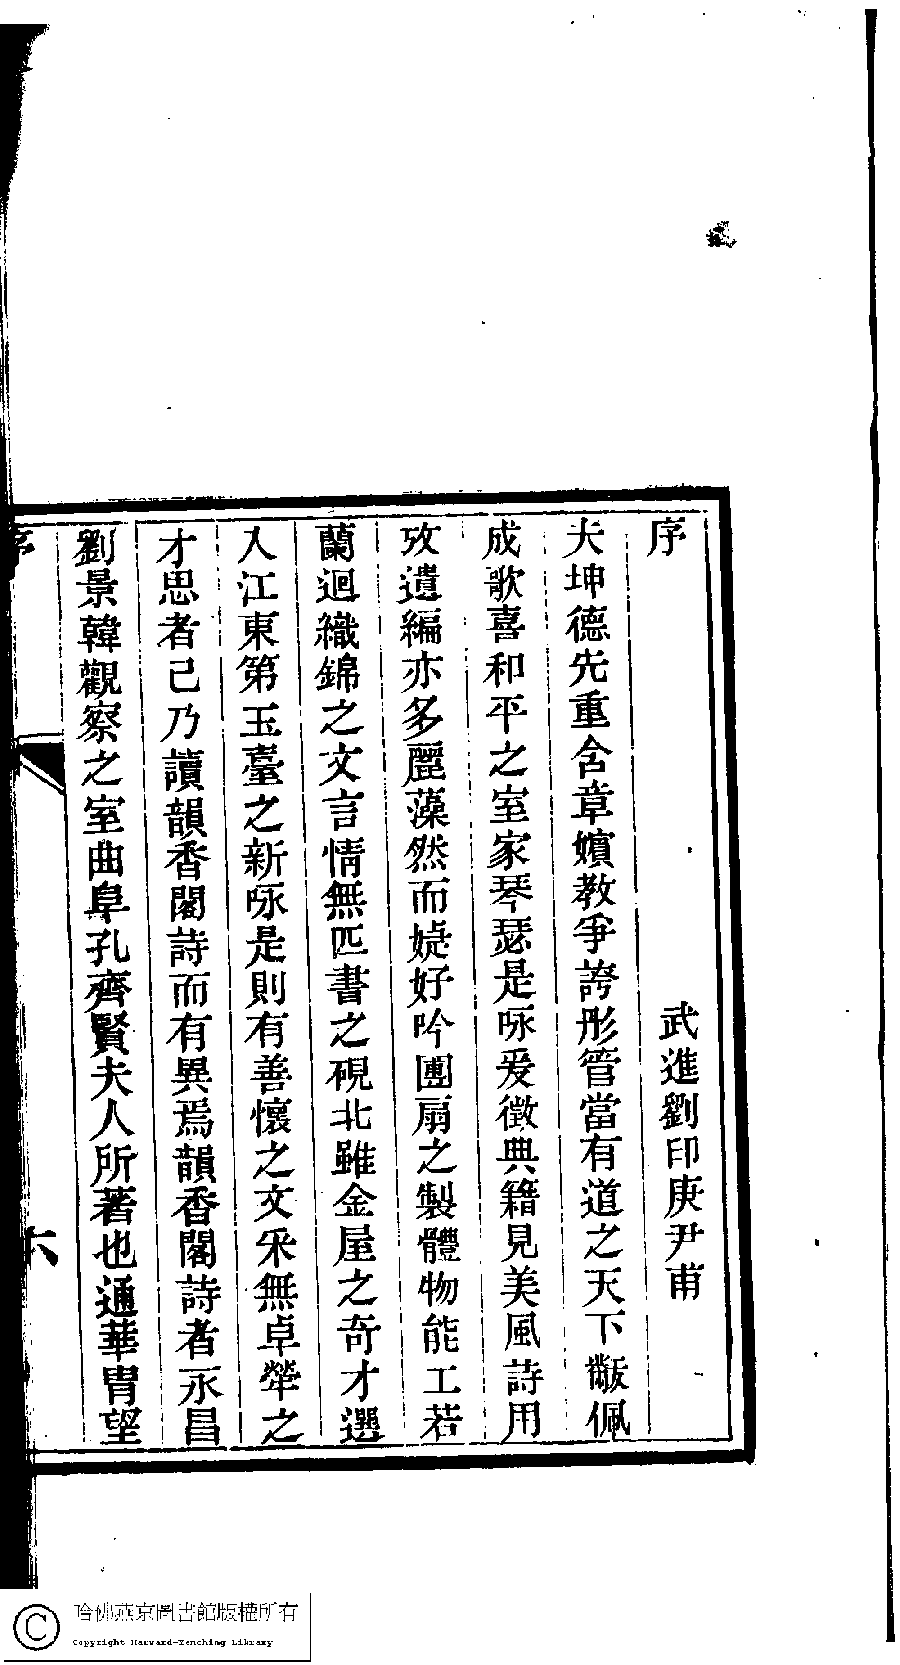 序
武進劉印庚尹甫
夫坤德先重含章嬪教爭誇彤管當有道之天下黻佩
成歌喜和平之室家琴瑟是咏爰徵典籍見美風詩用
攷遺編亦多麗藻然而婕妤吟團扇之製體物能工若
蘭迴織錦之文言情無匹書之硯北雖金屋之奇才選
入江東第玉臺之新咏是則有善懷之文采無卓犖之
才思者已乃讀韻香閣詩而有異焉韻香閣詩者永昌
劉景韓觀察之室曲阜孔齊賢夫人所著也通華胄望
序
六
哈佛燕京圖書館版權所有
Copyright Harvard-Yenching Library